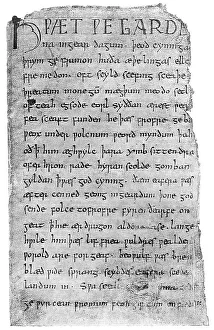 HǷÆT ǷE GARDE
na ingear dagum. þeod cyninga
þrym ge frunon huða æþelingas elle
fremedon. oft scyld scefing sceaþe
þreatum monegū mægþum meodo setla
of teah egsode eorl syððan ærest ƿear
fea sceaft funden he þæs frofre geba
ƿeox under ƿolcnum ƿeorð myndum þah
oð ꝥ him æghƿylc þara ymb sittendra
ofer hron rade hyran scolde gomban
gyldan ꝥ ƿæs god cyning. ðæm eafera ƿæs
æfter cenned geong ingeardum þone god
sende folce tofrofre fyren ðearfe on
geat ꝥ hie ær drugon aldor ase. lange
hƿile him þæs lif frea ƿuldres ƿealdend
ƿorold are for geaf. beoƿulf ƿæs breme
blæd ƿide sprang scyldes eafera scede
landum in. Sƿa sceal
ge ƿyrcean fromum feoh giftum on fæder